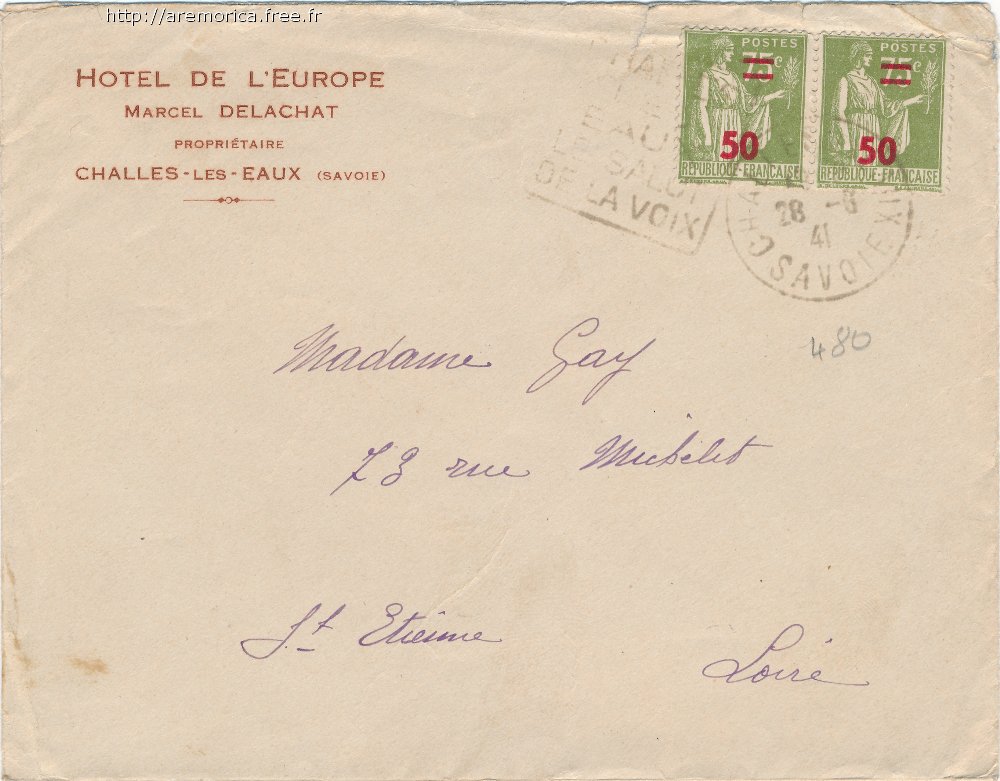 http://aremorica.free.fr
HOTEL DE L'EUROPE
MARCEL DELACHAT
PROPRIÉTAIRE
CHALLES-LES-EAUX (SAVOIE)
POSTES
75c
50
RÉPUBLIQUE-FRANÇAISE
POSTES
75c
50
RÉPUBLIQUE-FRANÇAISE
SALUT
DE LA VOIX
28 -8
41
SAVOIE
480
Madame Gay
73 rue Michelet
St Etienne
Loire